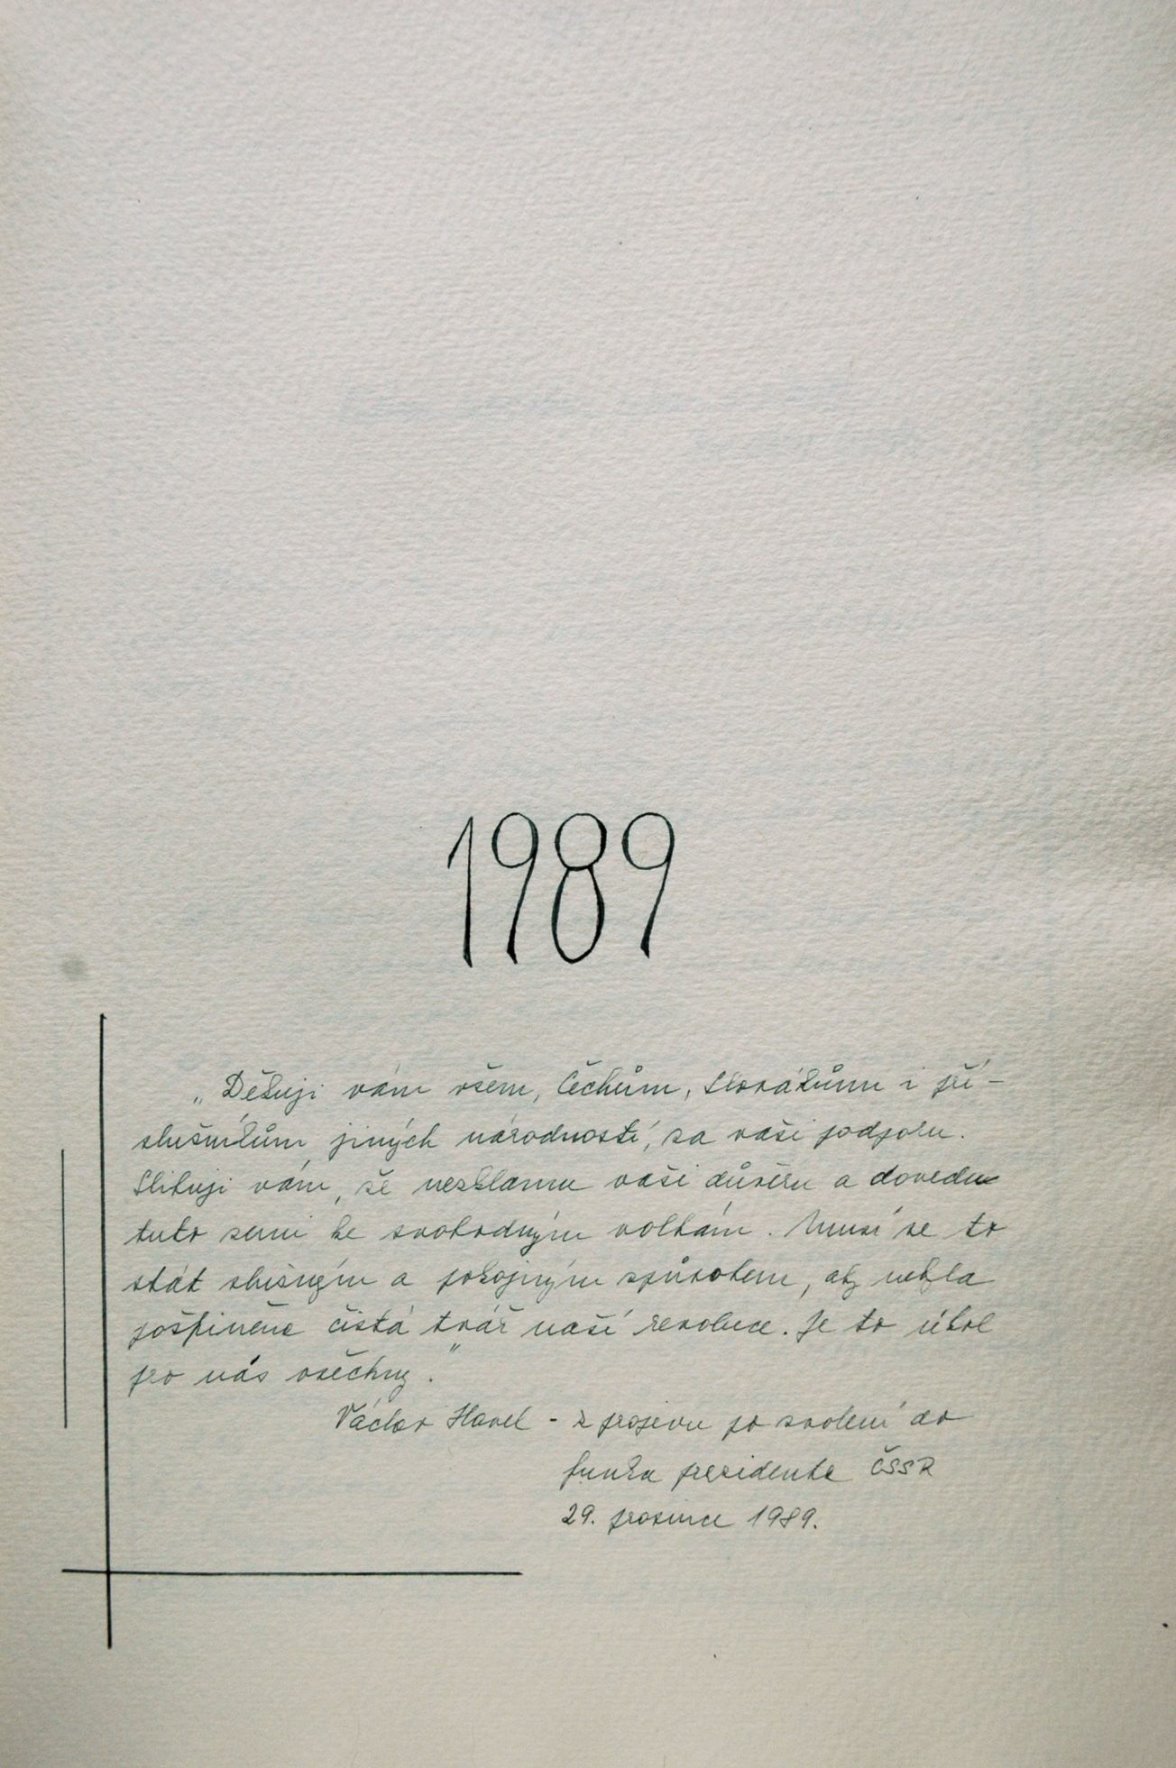 1989
„Děkuji vám všem, Čechům, Slovákům i pří-
slušníkům jiných národností, za vaši podporu.
Slibuji vám, že nezklamu vaši důvěru a dovedu
tuto zemi ke svobodným volbám. Musí se to
stát slušným a pokojným způsobem, aby nebyla
pošpiněna čistá tvář naší revoluce. Je to úkol
pro nás všechny."
Václav Havel - z projevu po zvolení do
funkce prezidenta ČSSR
29. prosince 1989.